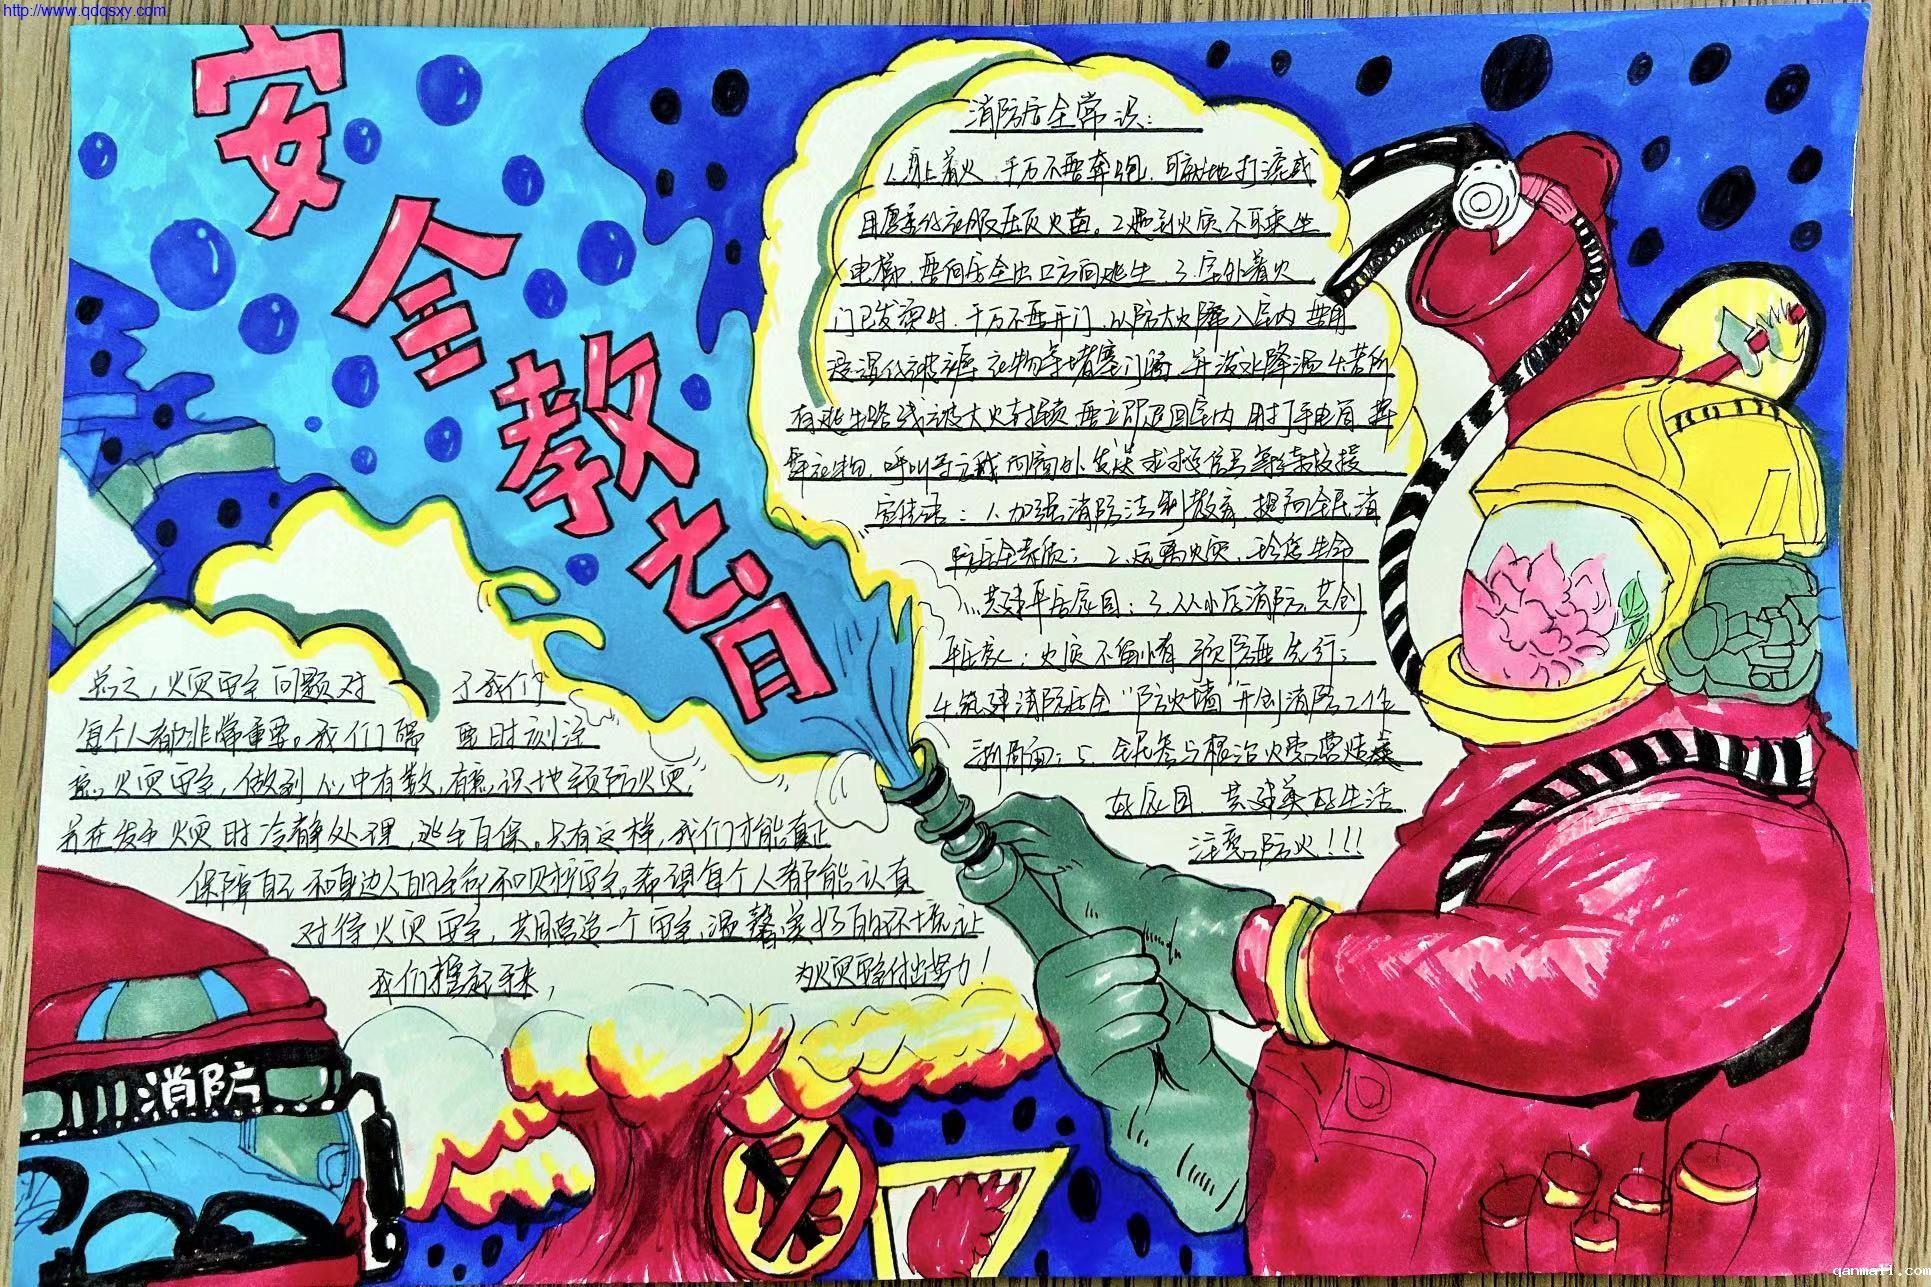 http://www.qdqsxy.com
安全教育
消防安全常识:
1.身上着火,千万不要奔跑,可就地打滚或
用厚重的衣服压灭火苗。2.遇到火灾不可乘坐
电梯,要向安全出口方向逃生.3.室外着火
门已发烫时.千万不要开门,以防大火窜入室内要用
浸湿的被褥衣物等堵塞门窗并泼水降温4.若所
有逃生路线被大火封锁要立即退回室内用打手电筒挥
舞衣物,呼叫等方式向窗外发送求救信号等待救援
宣传语:1.加强消防法制教育提高全民消
防安全素质;2.远离火灾,珍爱生命
共建平安家园;3.从小店消防,共创
平安;火灾不留情预防要先行;
4.筑建消防安全"防火墙"开创消防工作
新局面;5.全民参与根治火患营造
好家园共建美好生活.
注意防火!!!
总之,火灾安全问题对于我们
每个人都非常重要。我们需要时刻注
意火灾安全,做到心中有数,有意识地预防火灾,
并在发生火灾时冷静处理,逃生自保。只有这样,我们才能真正
保障自己和身边人的生命和财产安全。希望每个人都能认真
对待火灾安全,共同营造一个安全、温馨、美好的环境,让
我们携起手来,为火灾安全付出努力!
消防
qanmall.com